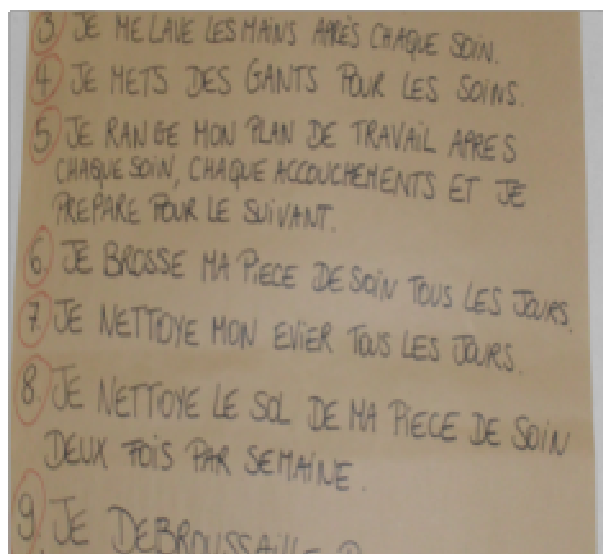 3 JE ME LAVE LES MAINS APRÈS CHAQUE SOIN.
4 JE METS DES GANTS POUR LES SOINS.
5 JE RANGE MON PLAN DE TRAVAIL APRES
CHAQUE SOIN, CHAQUE ACCOUCHEMENTS ET JE
PREPARE POUR LE SUIVANT.
6. JE BROSSE MA PIECE DE SOIN TOUS LES JOURS.
7. JE NETTOYE MON EVIER TOUS LES JOURS.
8. JE NETTOYE LE SOL DE MA PIECE DE SOIN
DEUX FOIS PAR SEMAINE.
9. JE DEBROUSSAILLE